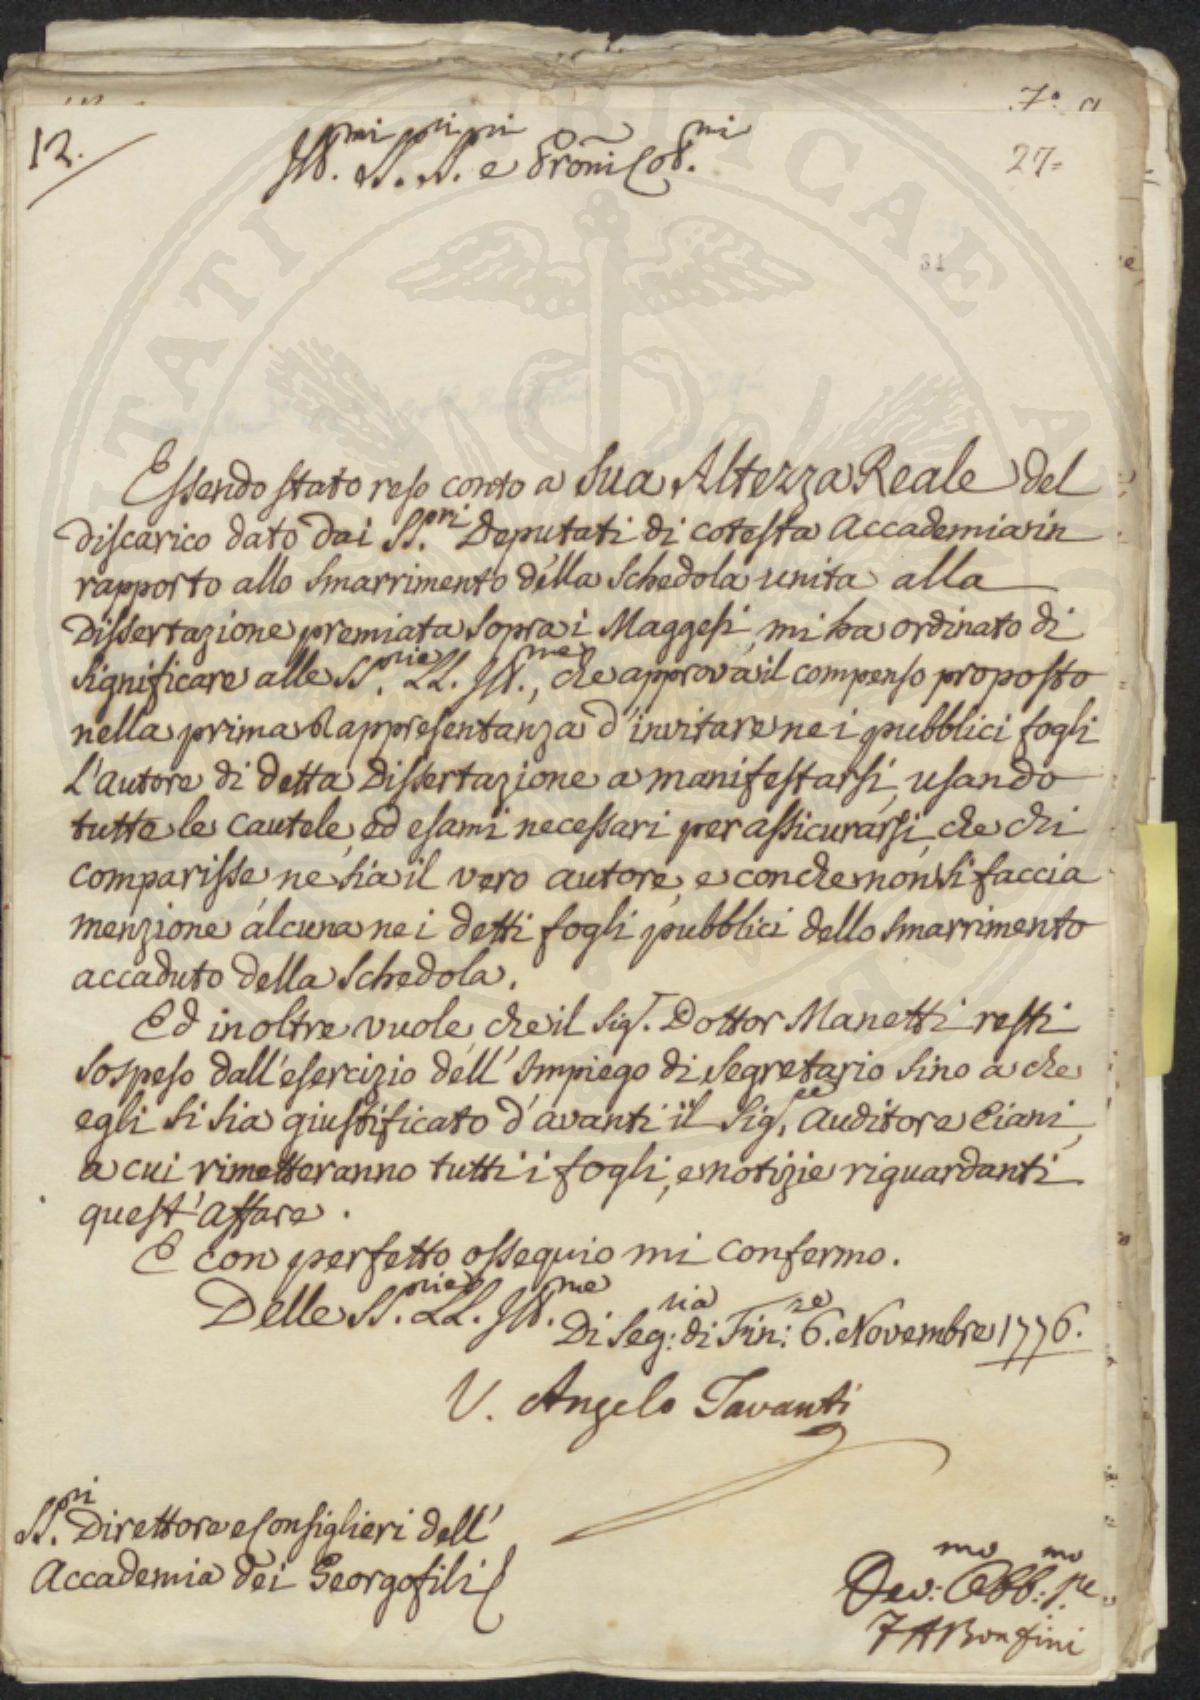 7.°
12.
Ill.mi SS.ri e Proñi Col.mi
27=
31
Essendo stato reso conto a Sua Altezza Reale del
discarico dato dai SS.ri Deputati di cotesta Accademia in
rapporto allo smarrimento della Schedola unita alla
Dissertazione premiata sopra i Maggesi, mi ha ordinato di
significare alle SS.rie LL. Ill.me, che approva il compenso proposto
nella prima Rappresentanza d'invitare ne i pubblici fogli
l'autore di detta Dissertazione a manifestarsi, usando
tutte le cautele, ed esami necessari per assicurarsi, che chi
comparisse ne sia il vero autore, e con che non si faccia
menzione alcuna ne i detti fogli pubblici dello smarrimento
accaduto della Schedola.
Ed inoltre vuole, che il Sig.r Dottor Manetti resti
sospeso dall'esercizio dell'Impiego di Segretario sino a che
egli si sia giustificato d'avanti il Sig.re Auditore Ciani,
a cui rimetteranno tutti i fogli, e notizie riguardanti
quest'affare.
E con perfetto ossequio mi confermo.
Delle SS.rie LL. Ill.me
Di Seg:ria di Fin:ze 6. Novembre 1776.
V. Angelo Tavanti
SS.ri Direttore e Consiglieri dell'
Accademia dei Georgofili
Dev:mo Obb:mo S.re
F A Bonfini